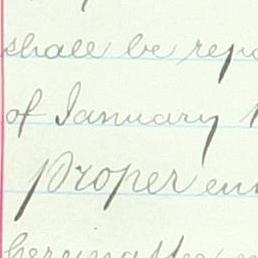 shall be repa
of January 1
Proper enu
hereinafter